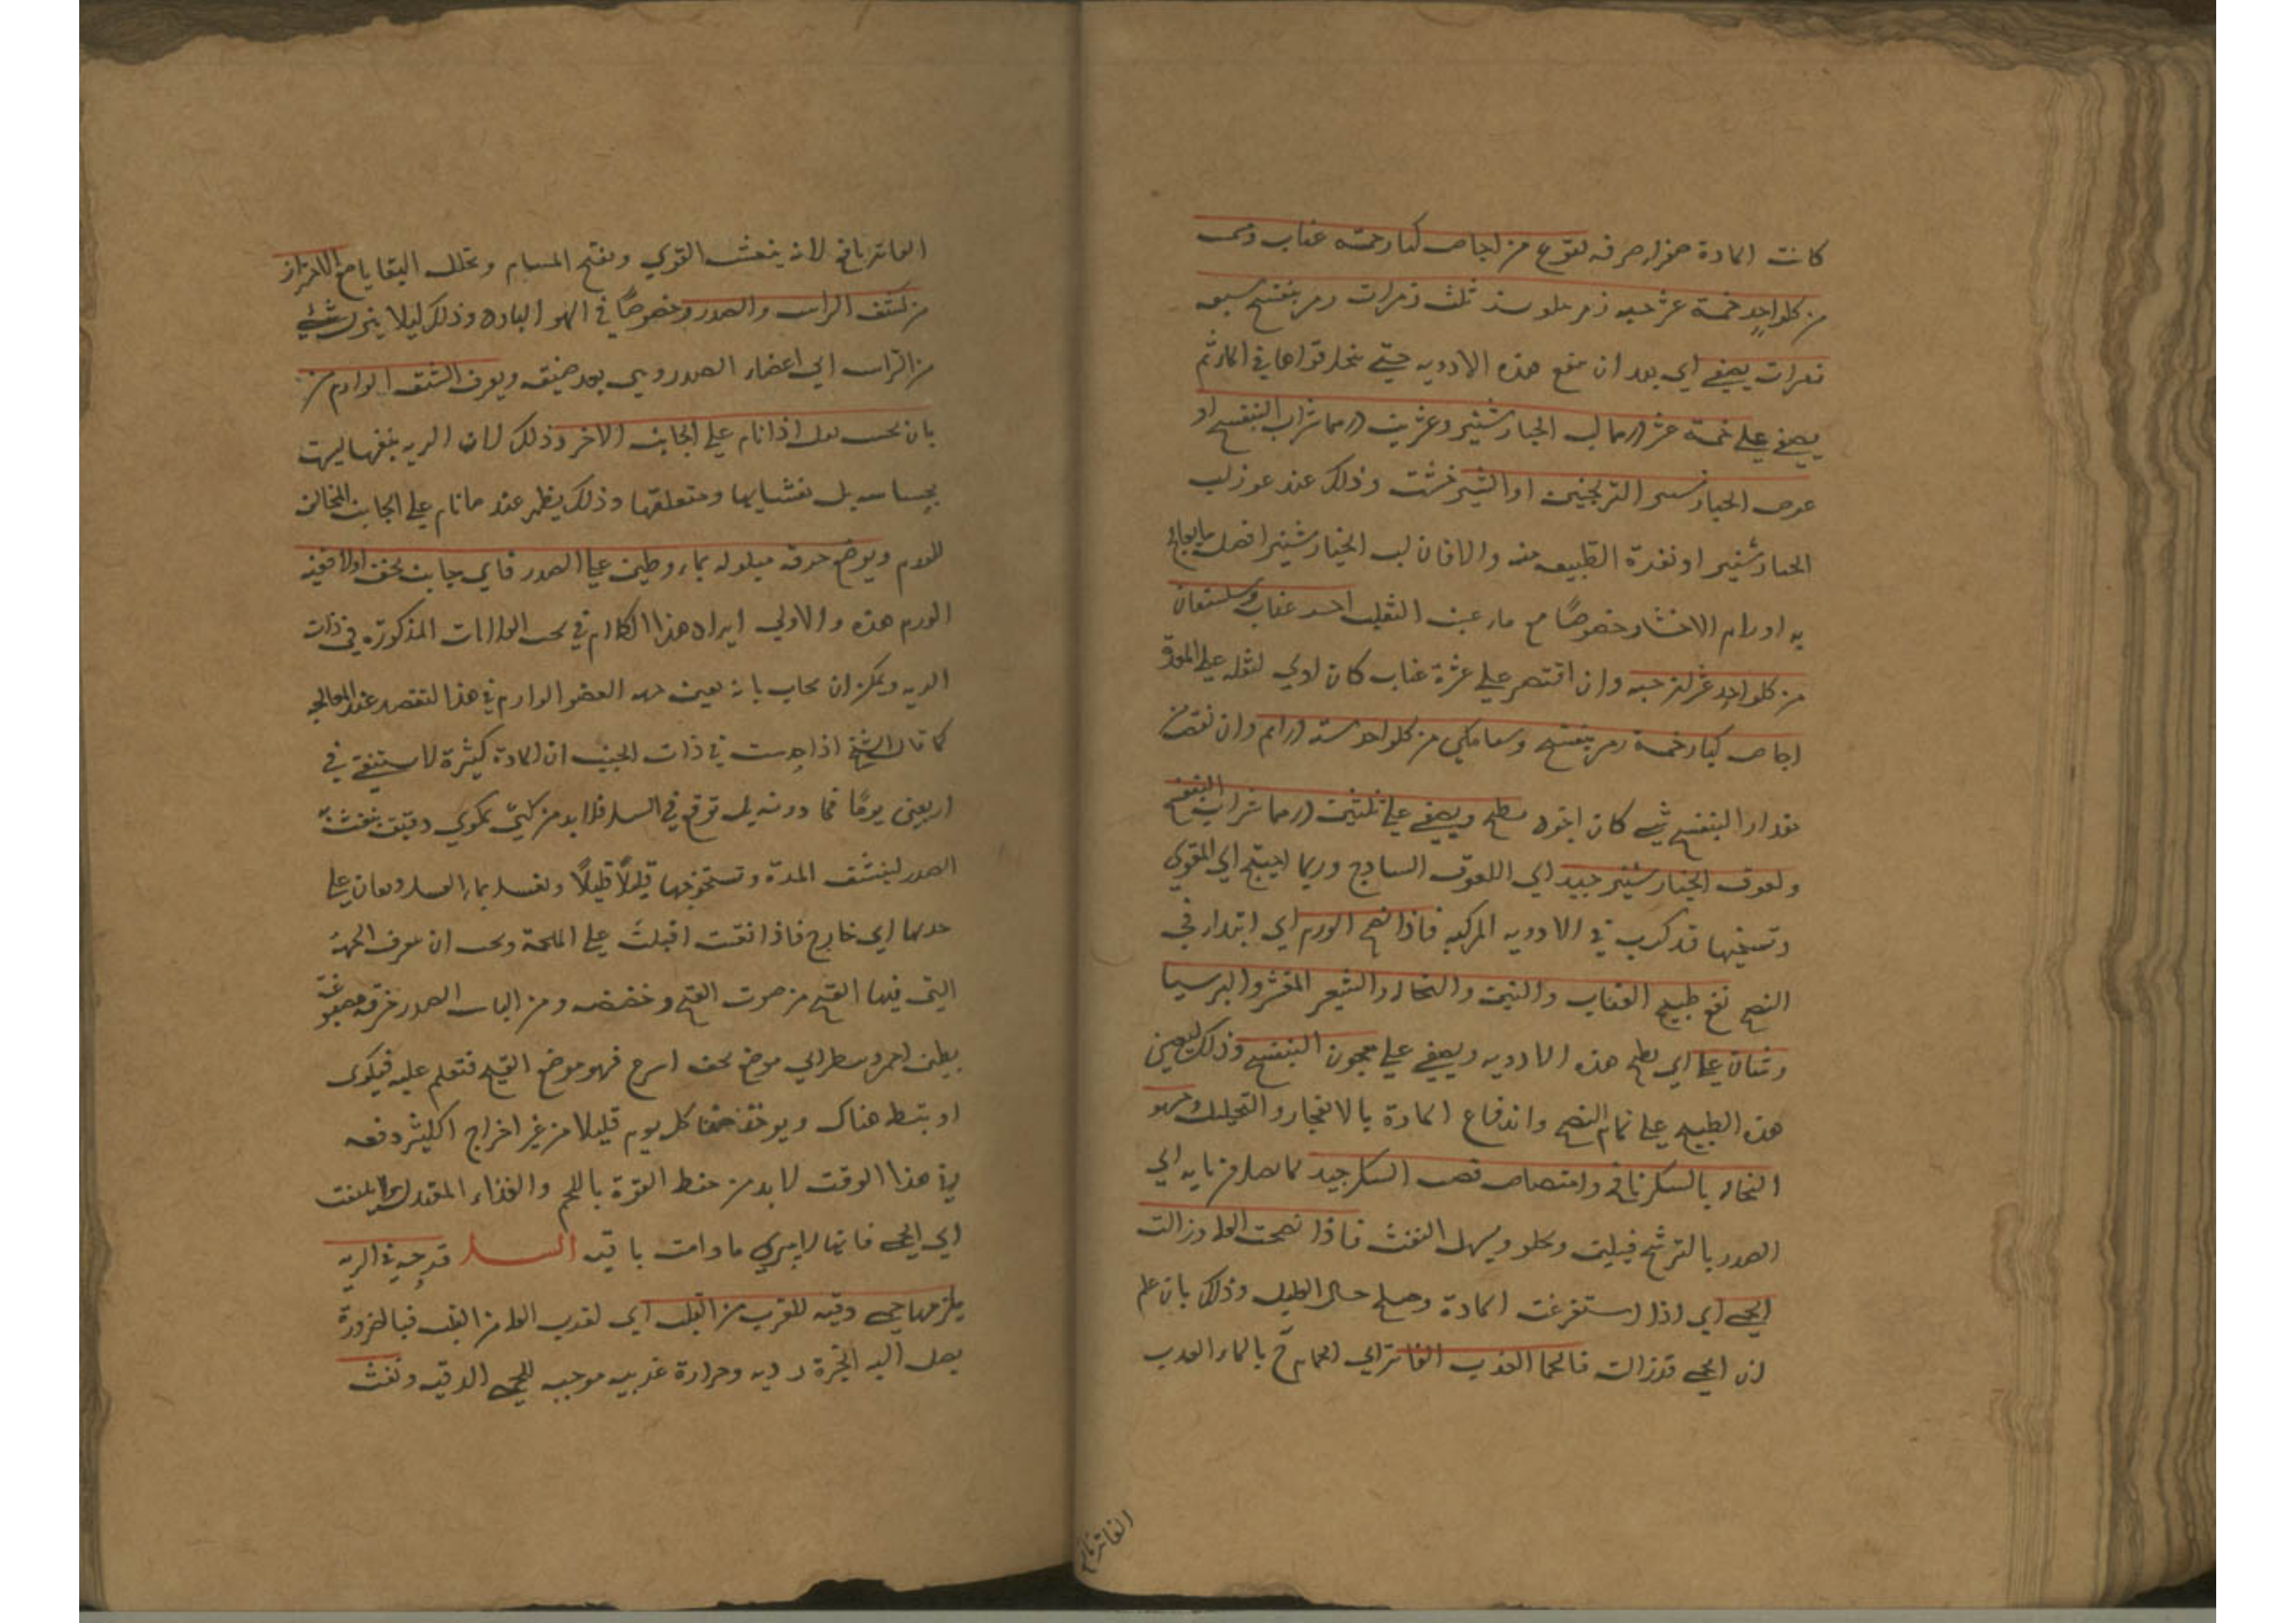 كانت المادة صفراء صرفه نقوع من اجاص كبار خمسه عناب
من كل واحد خمسة عشر حبه زهر ثلث زهرات بنفسج سبعه
زهرات يصفى اي بعد ان ينقع هذه الادويه حتى ينحل قواها في الماء ثم
يصفى على خمسة عشر درهما لب الخيارشنبر وعشرين درهما شراب البنفسج او
عوض الخيارشنبر الترنجبين او الشيرخشت وذلك عند عوز لب
الخيارشنبر او نفرة الطبيعه منه والا فان لب الخيارشنبر افضل ما يعالج
به اورام الاحشاء خصوصًا مع ماء عنب الثعلب عناب وسبستان
من كل واحد عشرين حبه وان اقتصر على عشرة عناب كان اولى لثقله على المعدة
اجاص كبار خمسة زهر بنفسج من كل واحد ستة دراهم وان نقص من
مقدار البنفسج شي كان اجود يطبخ ويصفى على ثلثين درهما شراب البنفسج
ولعوق الخيارشنبر جيد اي اللعوق الساذج وربما احتيج الي المقوي
ونسختها قد كتبت في الادويه المركبه فاذا نضج الورم اي ابتداء في
النضج نفع طبيخ العناب والتين والنخاله والشعير المقشر والبرسيا
وشان على اي يطبخ هذه الادويه ويصفى على معجون البنفسج وذلك ليعين
هذه الطبيخ على تمام النضج واندفاع المادة بالانفجار والتحليل وحسو
النخاله بالسكر نافع وامتصاص قصب السكر جيد لما يصل من مايه الي
الصدر بالترشح فيلين ويجلو ويسهل النفث فاذا نضجت العله وزالت
الحمى اي اذا استفرغت المادة وصلح حال العليل وذلك بان علم
ان الحمى قد زالت فالحمام العذب الفاتر اي الحمام بالماء العذب
الفاتر نافع
الفاتر نافع لانه ينعش القوي ويفتح المسام ويحلل البقايا مع الاحتراز
من كشف الراس والصدر وخصوصًا في الهوا البارد وذلك ليلا ينزل شئ
من الراس الي اعضاء الصدر وهي بعد ضعيفه ويعرف الشق الوارم من
بان يحس اذا نام على الجانب الاخر وذلك لان الريه بنفسها ليست
بحساسه بل بغشايها ومتعلقها وذلك يظهر عند ما نام على الجانب المخالف
للورم ويوضع خرقه مبلوله بماء وطين على الصدر فاي جانب يجف اولا ففيه
الورم هذه والاولي ايراد هذا الكلام في بحث العلامات المذكورة في ذات
الريه ويمكن ان يجاب بانه يعين العضو الوارم في هذا لتقصد عند المعالجه
كما قال الشيخ اذا في ذات الجنب ان المادة كثيرة لا يستنقى في
اربعين يومًا فما دونه بل توقع في السل فلا بد من كيّ بمكوى دقيق
الصدر لينشف المدة ويستخرجها قليلًا قليلًا ويغسل بماء العسل ويعان على
جذبها الي خارج فاذا نقيت اقبلت على الملحمة ويجب ان يعرف الجهة
التي فيها القيح من صوت القيح وخضخضه ومن الناس الصدر خرقه مصبوغة
بطين احمر وينظر الي موضع يجف اسرع فهو موضع القيح فتعلم عليه فيكوى
او يبط هناك ويوخذ كل يوم قليلا من غير اخراج الكثير دفعه
في هذا الوقت لا بد من حفظ القوة باللحم والغذاء المعتدل ولا يلتفت
اي الحمى فانها لا تبرى ما دامت باقيه السل قرحة في الريه
يلزمها حمى دقيه للقرب من القلب اي لقرب العله من القلب فبالضرورة
يصل اليه ابخرة رديه وحرارة غريبه موجبه للحمى الدقيه ونفث